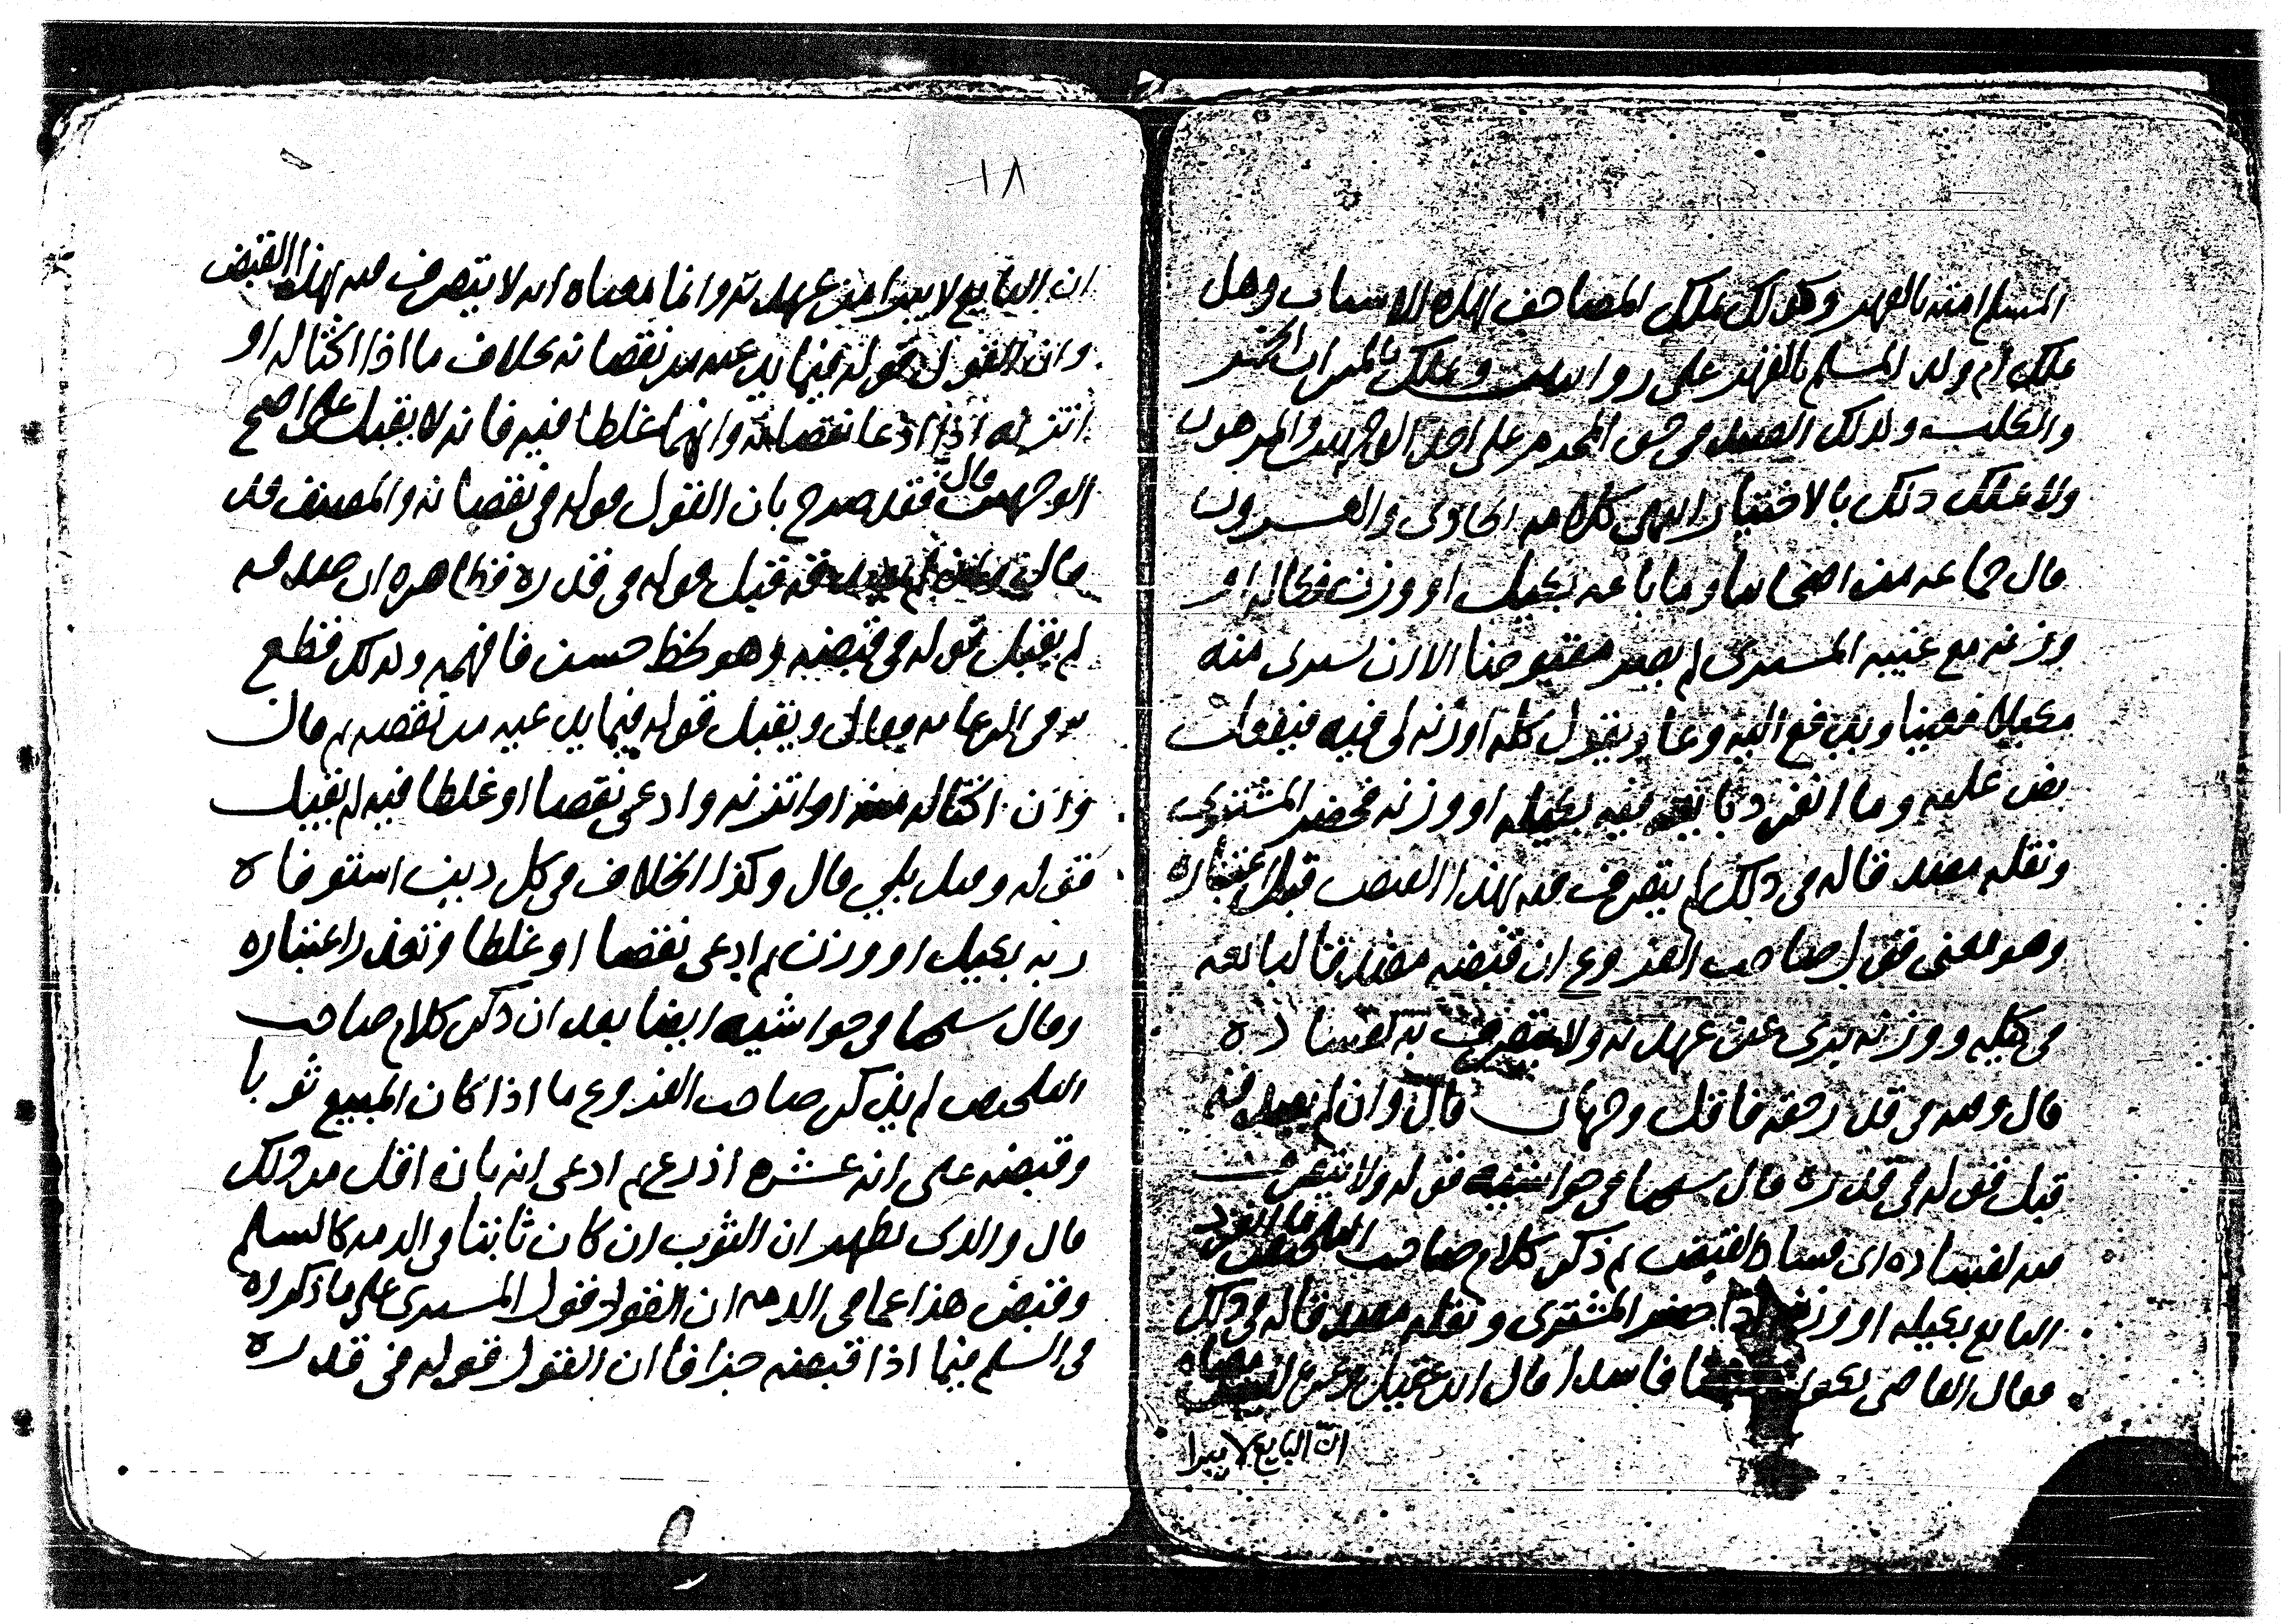 المسلم امنه بالقهر وكذلك تملك المصاحف بهذه الاسباب وهل
تملك ام ولد المسلم بالقهر على روايتين وتملك بالميراث الخمر
والكلب وكذلك الصيد في حق المحرم على احد الوجهين والمرهون
ولا تملك ذلك بالاختيار انتهى كلامه الحاوي والعشرون
قال جماعه من اصحابنا وما باعه بكيل او وزن فكاله او
وزنه مع غيبه المشتري لم يصر مقبوضا الا ان يشتري منه
مكيلا معينا ويدفع اليه وعا ويقول كله او زنه لي فيه فيفعل
نص عليه وما انفرد بايعه فيه بكيله او وزنه فحضر المشتري
ونقله مصدقا له في ذلك لم يتصرف فيه بهذا القبض قبل اعتباره
وهو معنى قول صاحب الفروع ان قبضه مصدقا لبائعه
في كيله ووزنه بري عن عهدته ولا يتصرف به لفساده
قال وفيه في قدر حقه فاقل وجهان قال وان لم يصدقه
قبل قوله في قدره قال شيخنا في حواشيه قوله ولا يتصرف
فيه لفساده اي فساد القبض ثم ذكر كلام صاحب التلخيص ما انفرد
البايع بكيله او وزنه اذا حضر المشتري ونقله مصدقا له في ذلك
فقال القاضي يكون فاسدا قال ابن عقيل معناه
ان البايع لا يبرا
١٨
ان البايع لا يبرا من عهدته وانما معناه انه لا يتصرف فيه بهذا القبض
وان القول قوله فيما يدعيه من نقصانه بخلاف ما اذا اكتاله او
اتزنه اذا ادعا نقصانه وانهما غلطا فيه فانه لا يقبل على اصح
الوجهين قال فقد صرح بان القول قوله في نقصانه والمصنف قد
قال قبل قوله في قدره فظاهره ان صدقه
لم يقبل قوله في قبضه وهو لحظ حسن فافهمه ولذلك قطع
به في الرعايه فقال ويقبل قوله فيما يدعيه من نقصه ثم قال
وان اكتاله منه او اتزنه وادعى نقصا او غلطا فيه لم يقبل
قوله وقيل بلى قال وكذا الخلاف في كل دين استوفاه
ربه بكيل او وزن ثم ادعى نقصا او غلطا وتعذر اعتباره
وقال شيخنا في حواشيه ايضا بعد ان ذكر كلام صاحب
التلخيص لم يذكر صاحب الفروع ما اذا كان المبيع ثوبا
وقبضه على انه عشره اذرع ثم ادعى انه بان اقل من ذلك
قال والذي يظهر ان الثوب ان كان ثابتا في الذمه كالسلم
وقبض هذا عما في الذمه ان القول قول المشتري على ما ذكراه
في السلم فيما اذا قبضه جزافا ان القول قوله في قدره